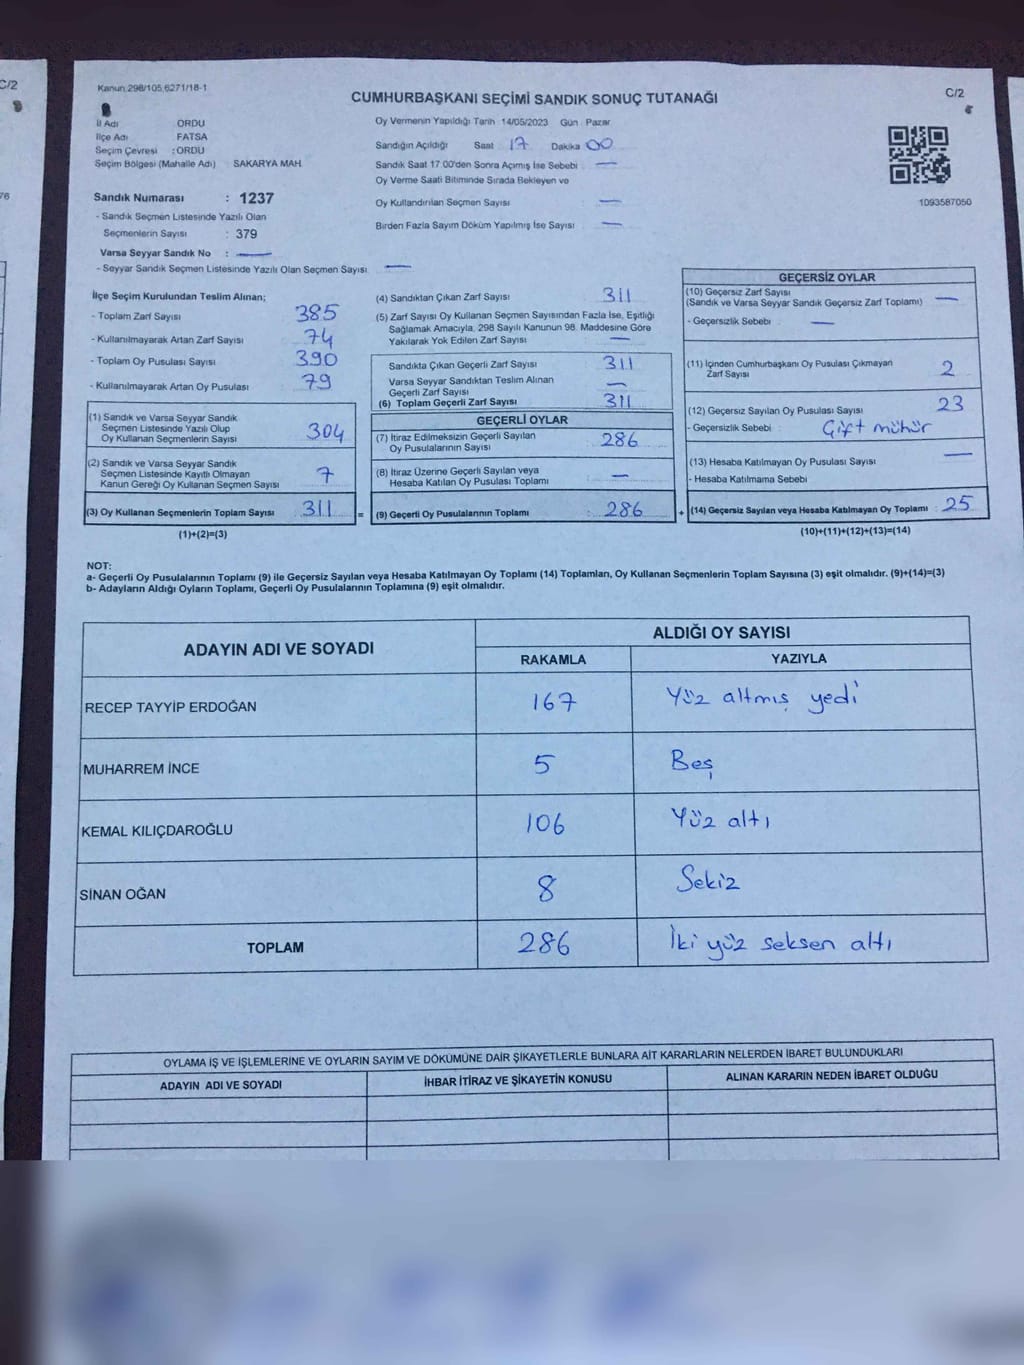 C/2
76
Kanun 298/105,6271/18-1
CUMHURBAŞKANI SEÇİMİ SANDIK SONUÇ TUTANAĞI
C/2
İl Adı ORDU
İlçe Adı FATSA
Seçim Çevresi : ORDU
Seçim Bölgesi (Mahalle Adı) SAKARYA MAH.
Sandık Numarası : 1237
- Sandık Seçmen Listesinde Yazılı Olan
Seçmenlerin Sayısı : 379
Varsa Seyyar Sandık No : —
- Seyyar Sandık Seçmen Listesinde Yazılı Olan Seçmen Sayısı —
Oy Vermenin Yapıldığı Tarih 14/05/2023 Gün Pazar
Sandığın Açıldığı Saat 17 Dakika 00
Sandık Saat 17.00'den Sonra Açımış İse Sebebi —
Oy Verme Saati Bitiminde Sırada Bekleyen ve
Oy Kullandırılan Seçmen Sayısı —
Birden Fazla Sayım Döküm Yapılmış İse Sayısı —
1093587050
İlçe Seçim Kurulundan Teslim Alınan;
- Toplam Zarf Sayısı 385
- Kullanılmayarak Artan Zarf Sayısı 74
- Toplam Oy Pusulası Sayısı 390
- Kullanılmayarak Artan Oy Pusulası 79
(1) Sandık ve Varsa Seyyar Sandık
Seçmen Listesinde Yazılı Olup
Oy Kullanan Seçmenlerin Sayısı 304
(2) Sandık ve Varsa Seyyar Sandık
Seçmen Listesinde Kayıtlı Olmayan
Kanun Gereği Oy Kullanan Seçmen Sayısı 7
(3) Oy Kullanan Seçmenlerin Toplam Sayısı 311 =
(1)+(2)=(3)
(4) Sandıktan Çıkan Zarf Sayısı 311
(5) Zarf Sayısı Oy Kullanan Seçmen Sayısından Fazla İse, Eşitliği
Sağlamak Amacıyla, 298 Sayılı Kanunun 98. Maddesine Göre
Yakılarak Yok Edilen Zarf Sayısı —
Sandıkta Çıkan Geçerli Zarf Sayısı 311
Varsa Seyyar Sandıktan Teslim Alınan
Geçerli Zarf Sayısı —
(6) Toplam Geçerli Zarf Sayısı 311
GEÇERLİ OYLAR
(7) İtiraz Edilmeksizin Geçerli Sayılan
Oy Pusulalarının Sayısı 286
(8) İtiraz Üzerine Geçerli Sayılan veya
Hesaba Katılan Oy Pusulası Toplamı —
(9) Geçerli Oy Pusulalarının Toplamı : 286 +
GEÇERSİZ OYLAR
(10) Geçersiz Zarf Sayısı
(Sandık ve Varsa Seyyar Sandık Geçersiz Zarf Toplamı) —
- Geçersizlik Sebebi —
(11) İçinden Cumhurbaşkanı Oy Pusulası Çıkmayan
Zarf Sayısı 2
(12) Geçersiz Sayılan Oy Pusulası Sayısı 23
- Geçersizlik Sebebi : Çift mühür
(13) Hesaba Katılmayan Oy Pusulası Sayısı —
- Hesaba Katılmama Sebebi
(14) Geçersiz Sayılan veya Hesaba Katılmayan Oy Toplamı : 25
(10)+(11)+(12)+(13)=(14)
NOT:
a- Geçerli Oy Pusulalarının Toplamı (9) ile Geçersiz Sayılan veya Hesaba Katılmayan Oy Toplamı (14) Toplamları, Oy Kullanan Seçmenlerin Toplam Sayısına (3) eşit olmalıdır. (9)+(14)=(3)
b- Adayların Aldığı Oyların Toplamı, Geçerli Oy Pusulalarının Toplamına (9) eşit olmalıdır.
ADAYIN ADI VE SOYADI
ALDIĞI OY SAYISI
RAKAMLA YAZIYLA
RECEP TAYYİP ERDOĞAN 167 Yüz altmış yedi
MUHARREM İNCE 5 Beş
KEMAL KILIÇDAROĞLU 106 Yüz altı
SİNAN OĞAN 8 Sekiz
TOPLAM 286 İki yüz seksen altı
OYLAMA İŞ VE İŞLEMLERİNE VE OYLARIN SAYIM VE DÖKÜMÜNE DAİR ŞİKAYETLERLE BUNLARA AİT KARARLARIN NELERDEN İBARET BULUNDUKLARI
ADAYIN ADI VE SOYADI İHBAR İTİRAZ VE ŞİKAYETİN KONUSU ALINAN KARARIN NEDEN İBARET OLDUĞU